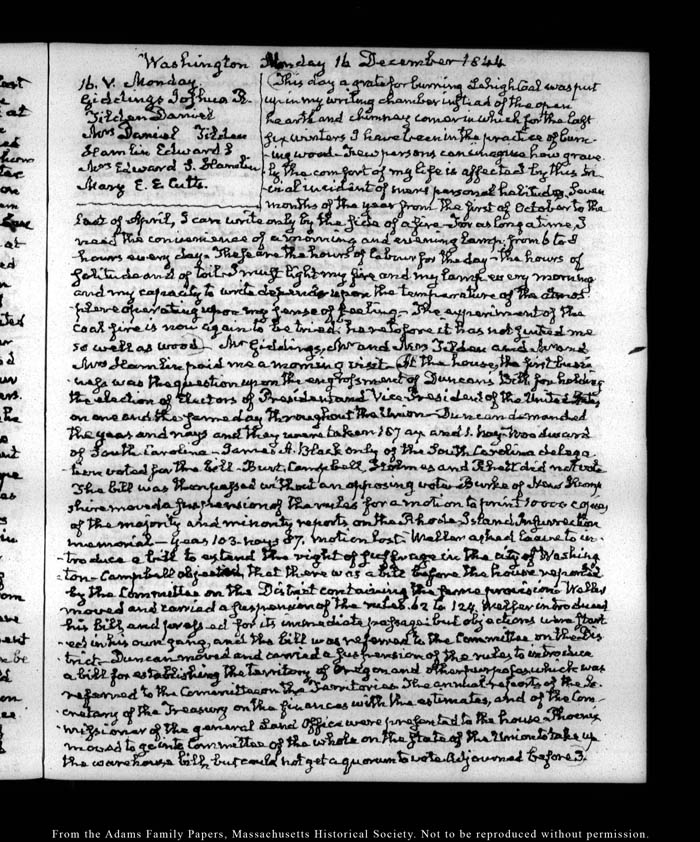 Washington Monday 16 December 1844
16. V. Monday
Giddings Joshua R.
Tilden Daniel
Mrs Daniel Tilden
Hamlin Edward S
Mrs Edward S. Hamlin
Mary E. E. Cutts.
This day a grate for burning Lehigh Coal was put
up in my writing chamber instead of the open
hearth and chimney corner in which for the last
six winters I have been in the practice of burn-
ing wood. Few persons can imagine how grave-
ly the comfort of my life is affected by this tri-
vial incident of mere personal habitude. Seven
months of the year from the first of October to the
last of April, I can write only by the side of a fire. For as long a time, I
need the convenience of a morning and evening lamp, from 6 to 8
hours every day. These are the hours of labour for the day, the hours of
solitude and of toil. I must light my fire and my lamp every morning
and my capacity to write depends upon the temperature of the atmos-
phere operating upon my sense of feeling. The experiment of the
coal fire is now again to be tried: heretofore it has not suited me
so well as wood. Mr Giddings, Mr and Mrs Tilden and Mr and
Mrs Hamlin paid me a morning visit. At the house, the first busi-
ness was the question upon the engrossment of Duncan's Bill for holding
the election of Electors of President and Vice-President of the United States,
on one and the same day throughout the Union. Duncan demanded
the yeas and nays and they were taken 187 ay and 1. nay Woodward
of South Carolina. James A. Black only of the South Carolina delega-
tion voted for the bill. Burt, Campbell, Holmes and Rhett did not vote
The bill was then passed without an opposing vote. Burke of New Hamp-
shire moved a suspension of the rules for a motion to print 10000 copies
of the majority and minority reports on the Rhode-Island Insurrection
memorial. Yeas 103. nays 87. motion lost. Weller asked leave to in-
troduce a bill to extend the right of suffrage in the city of Washing-
ton. Campbell objected, that there was a bill before the house reported
by the Committee on the District containing the same provision. Weller
moved and carried a suspension of the rules. 62 to 124. Weller introduced
his bill, and pressed for its immediate passage: but objections were start-
ed in his own gang, and the bill was referred to the Committee on the Dis-
trict. Duncan moved and carried a suspension of the rules to introduce
a bill for establishing the territory of Oregon and other purposes, which was
referred to the Committee on the Territories. The annual reports of the Se-
cretary of the Treasury on the finances with the estimates, and of the Com-
missioner of the general Land Office were presented to the house. Phoenix
moved to go into Committee of the whole on the State of the Union to take up
the warehouse bill, but could not get a quorum to vote. Adjourned before 3.
From the Adams Family Papers, Massachusetts Historical Society. Not to be reproduced without permission.